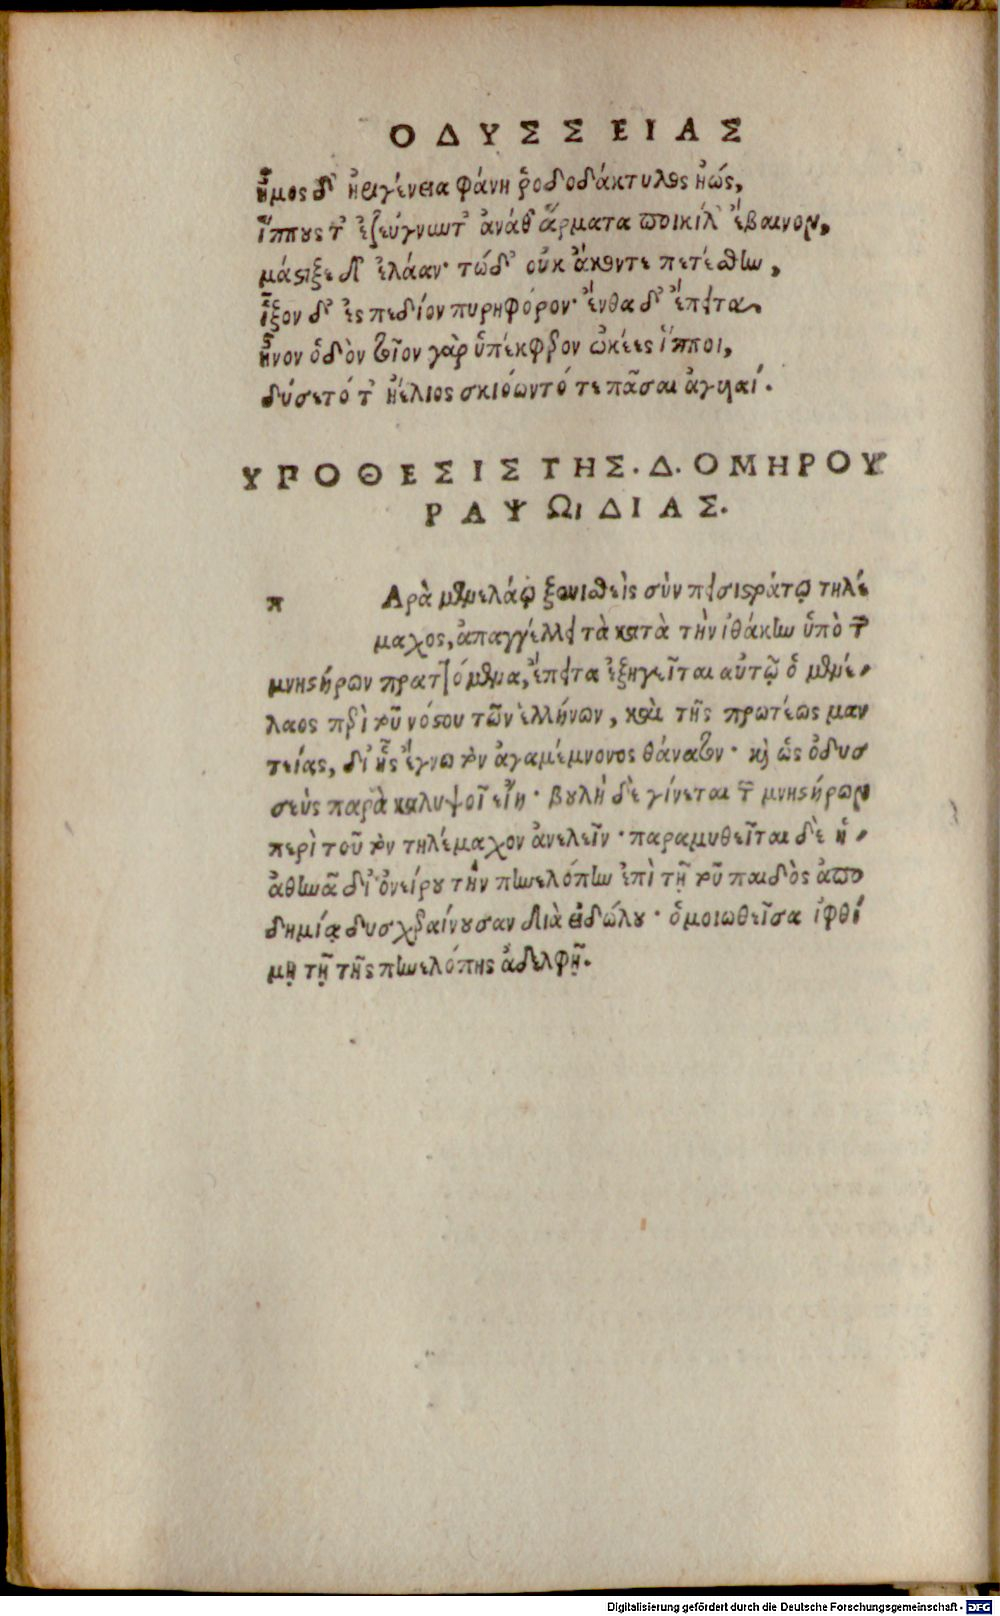 ΟΔΥΣΣΕΙΑΣ
ἦμος δ' ἠριγένεια φάνη ῥοδοδάκτυλος ἠώς,
ἵππους τ' ἐζεύγνωντ' ἀνάθ' ἅρματα ποικίλ' ἔβαινον,
μάστιξε δ' ἐλάαν· τώδ' οὐκ ἄκοντε πετέσθην,
ἷξον δ' ἐς πεδίον πυρηφόρον· ἔνθα δ' ἔπειτα
ἦνον ὁδὸν τοῖον γὰρ ὑπέκφερον ὠκέες ἵπποι,
δύσετό τ' ἠέλιος σκιόωντό τε πᾶσαι ἀγυιαί.
ΥΠΟΘΕΣΙΣ ΤΗΣ. Δ. ΟΜΗΡΟΥ
ΡΑΨΩΙΔΙΑΣ.
π Αρὰ μενελάῳ ξενισθεὶς σὺν πεισιστράτῳ τηλέ
μαχος, ἀπαγγέλλει τὰ κατὰ τὴν ἰθάκην ὑπὸ τῶν
μνηστήρων πραττόμενα, ἔπειτα ἐξηγεῖται αὐτῷ ὁ μενέ-
λαος περὶ τοῦ νόστου τῶν ἑλλήνων, καὶ τῆς πρωτέως μαν
τείας, δι' ἧς ἔγνω τὸν ἀγαμέμνονος θάνατον· καὶ ὡς ὀδυσ
σεὺς παρὰ καλυψοῖ εἴη· βουλὴ δὲ γίνεται τῶν μνηστήρων
περὶ τοῦ τὸν τηλέμαχον ἀνελεῖν· παραμυθεῖται δὲ ἡ-
ἀθηνᾶ δι' ὀνείρου τὴν πηνελόπην ἐπὶ τῇ τοῦ παιδὸς ἀπο
δημίᾳ δυσχεραίνουσαν διὰ εἰδώλου· ὁμοιωθεῖσα ἰφθί
μῃ τῇ τῆς πηνελόπης ἀδελφῇ.
Digitalisierung gefördert durch die Deutsche Forschungsgemeinschaft - DFG